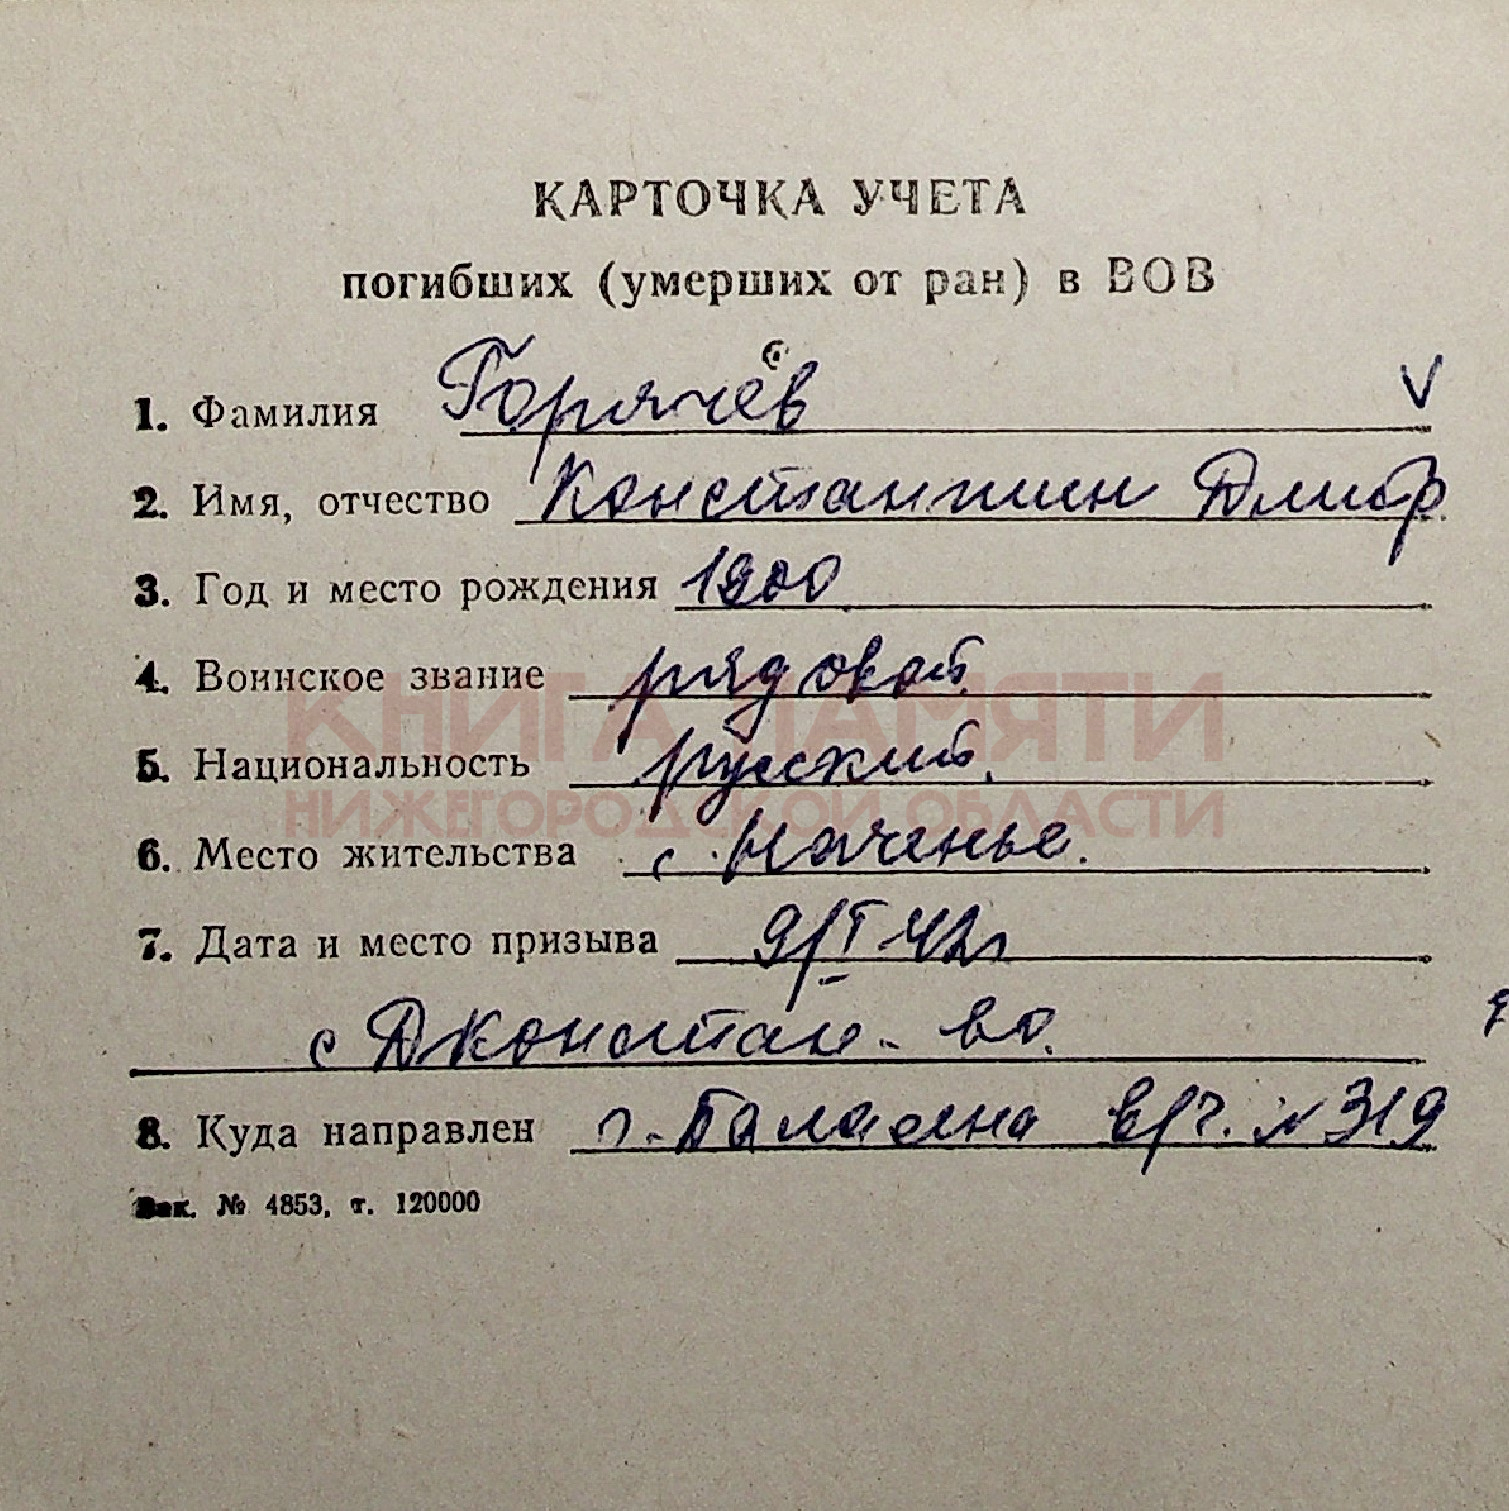 КАРТОЧКА УЧЕТА
погибших (умерших от ран) в ВОВ
1. Фамилия Горячёв
2. Имя, отчество Константин Дмитр
3. Год и место рождения 1900
4. Воинское звание рядовой
КНИГА ПАМЯТИ
5. Национальность русский.
НИЖЕГОРОДСКОЙ ОБЛАСТИ
6. Место жительства с. Наченье.
7. Дата и место призыва 9/I-42г
с Дконстан-во.
8. Куда направлен г. Балахна в/ч. №319
Зак. № 4853, т. 120000